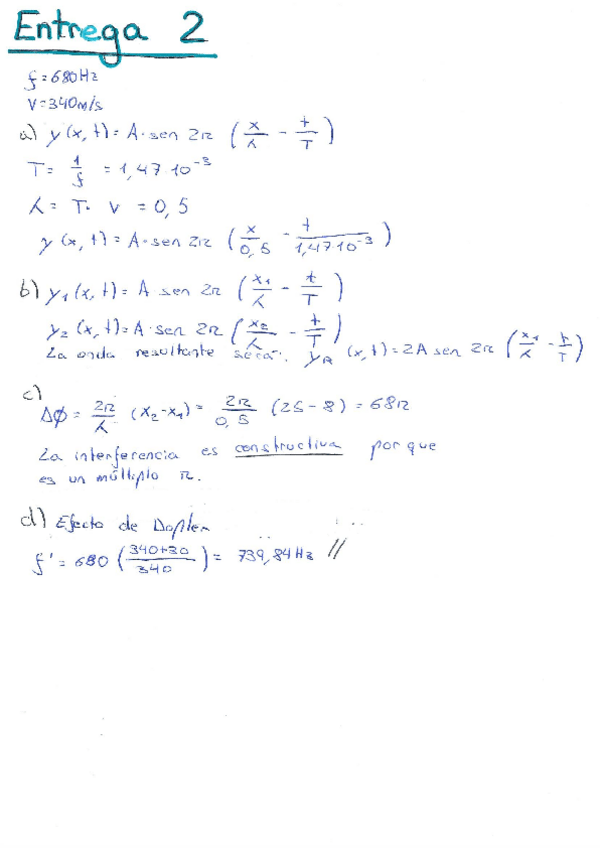 Entrega 2
f = 680 Hz
V = 340 m/s
a) y(x,t) = A·sen 2π (x/λ - t/T)
T = 1/f = 1,47·10⁻³
λ = T· V = 0,5
y(x,t) = A·sen 2π (x/0,5 - t/1,47·10⁻³)
b) y₁(x,t) = A sen 2π (x₁/λ - t/T)
y₂(x,t) = A·sen 2π (x₂/λ - t/T)
La onda resultante será: y_R (x,t) = 2A sen 2π (x₁/λ - t/T)
c)
Δϕ = 2π/λ (x₂-x₁) = 2π/0,5 (25-8) = 68π
La interferencia es constructiva por que
es un múltiplo π.
d) Efecto de Dopler
f' = 680 (340+30/340) = 739,84 Hz //